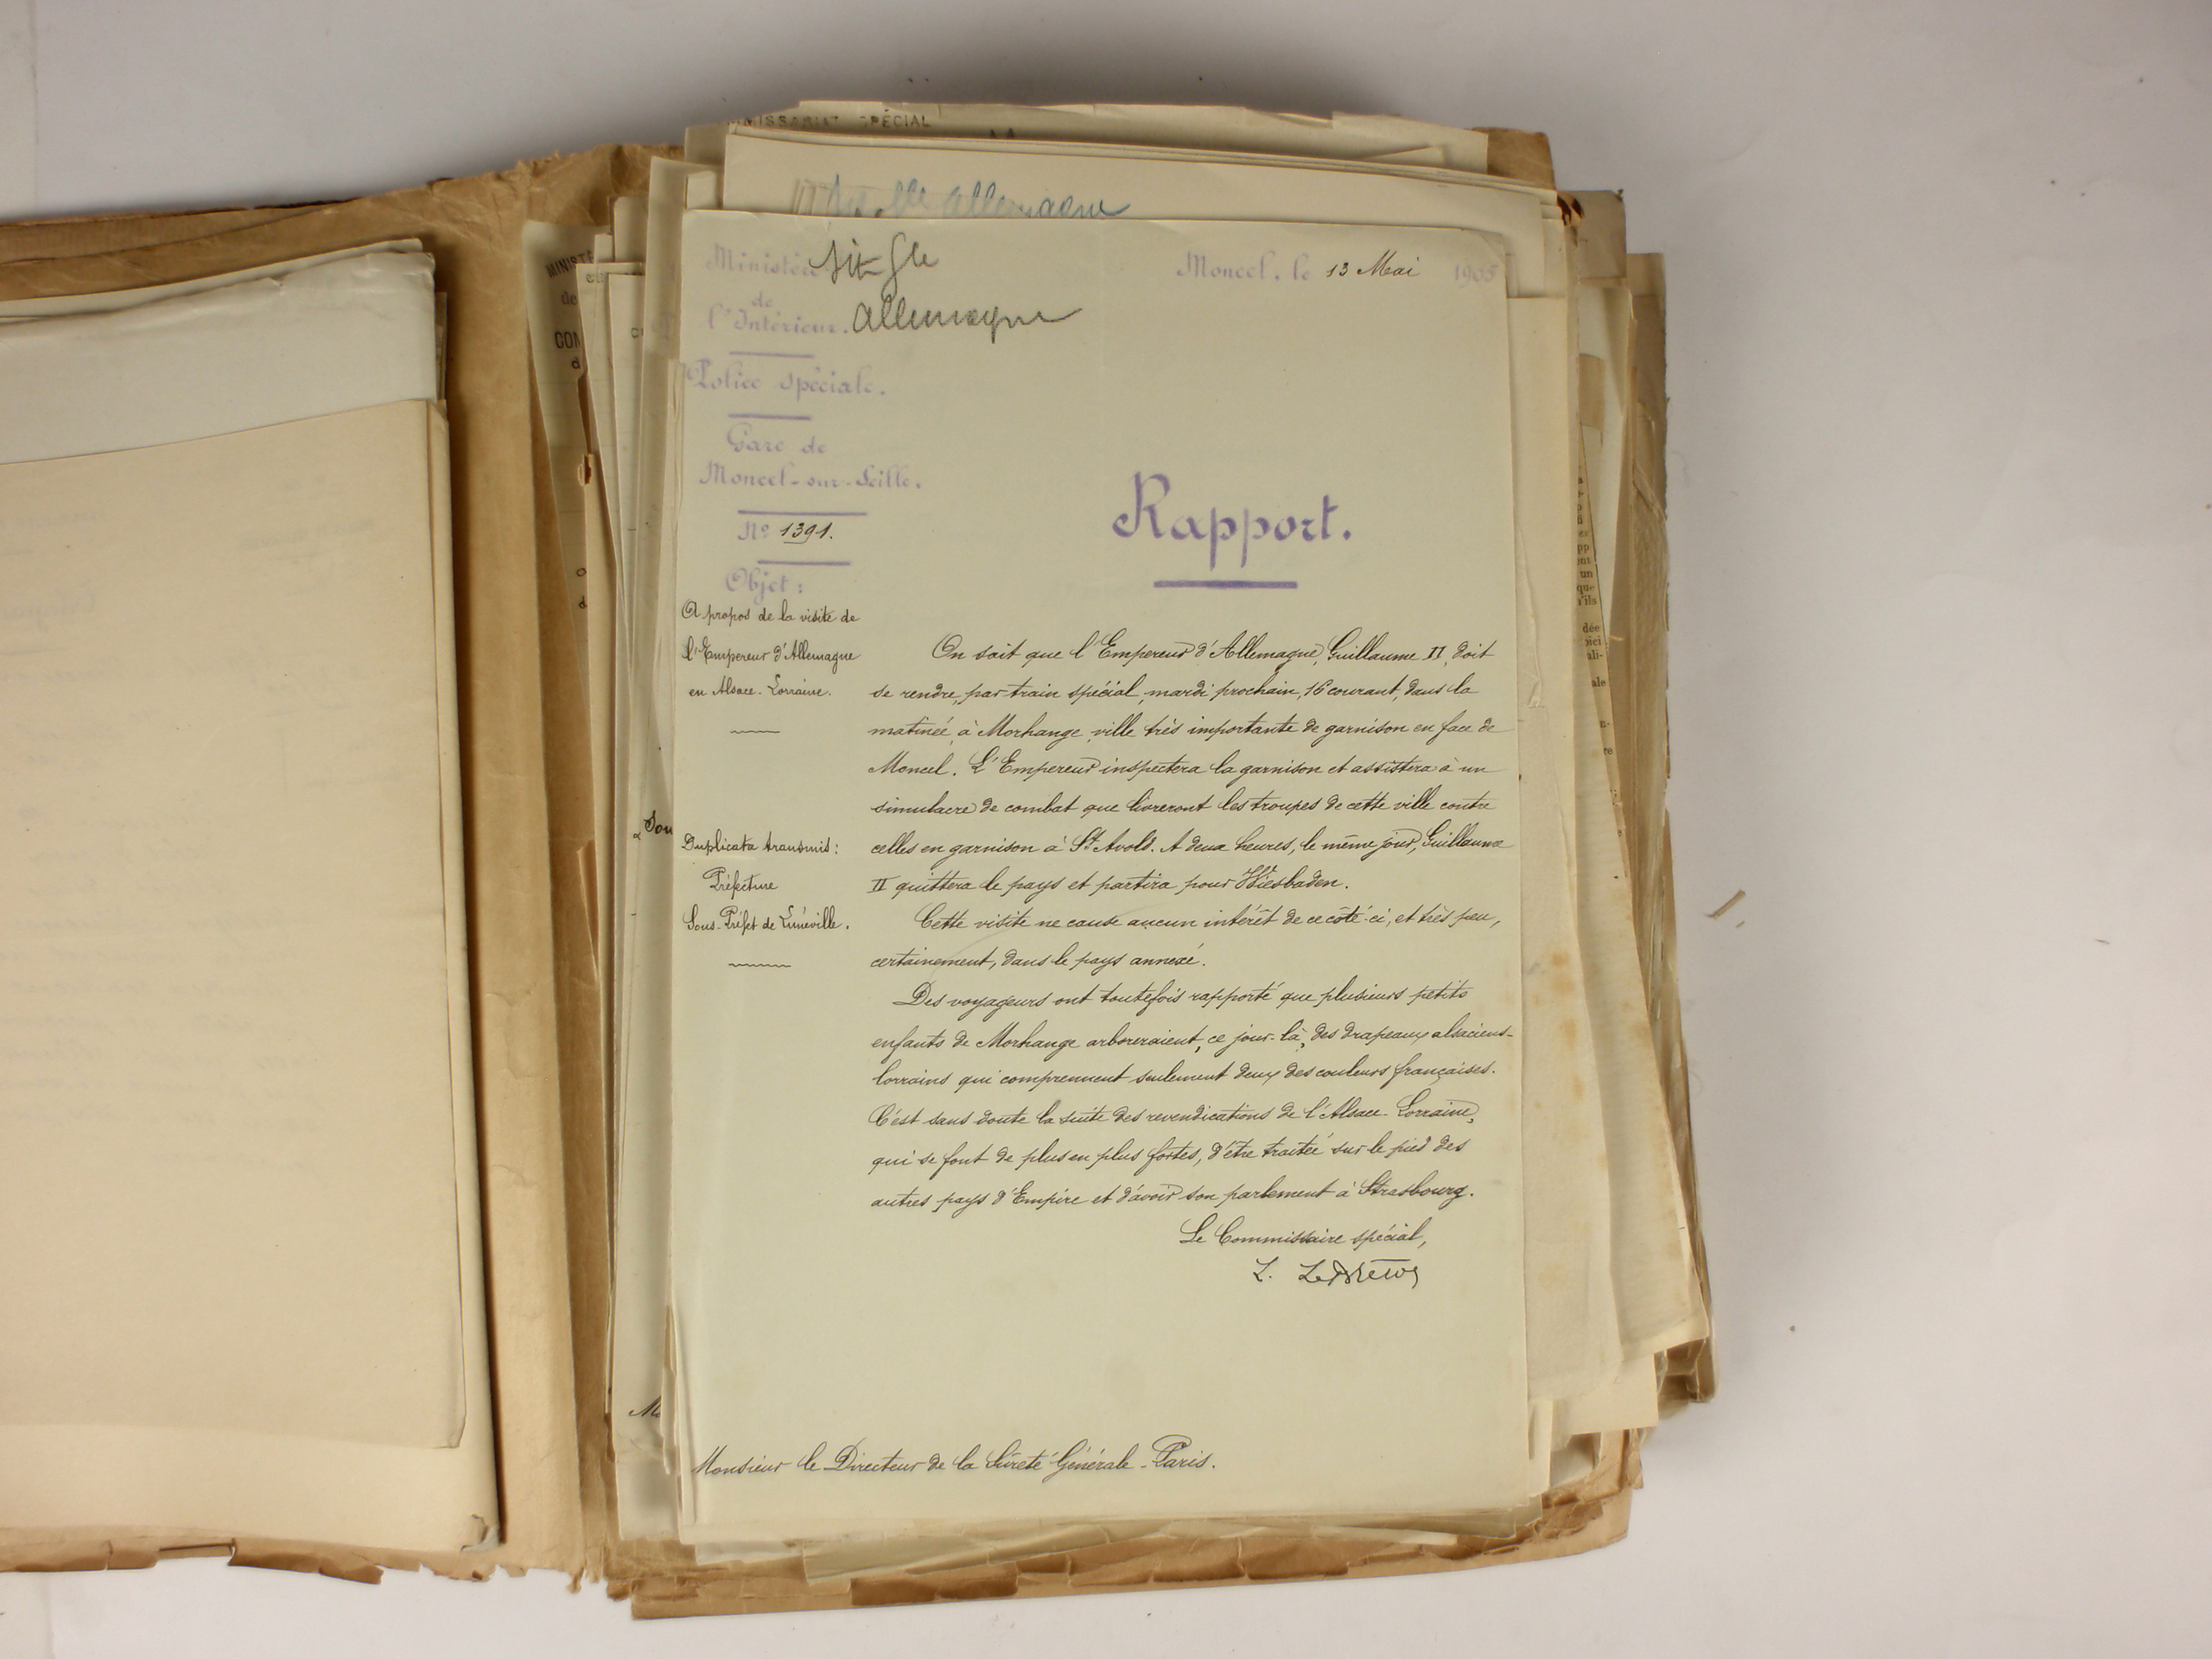 SPÉCIAL
allemagne
Ministère
sit Gle
de
l'Intérieur.
allemagne
Moncel, le 13 Mai 1905
Police spéciale.
Gare de
Moncel-sur-Seille.
No 1391.
Objet:
A propos de la visite de
l'Empereur d'Allemagne
en Alsace-Lorraine.
Duplicata transmis:
Préfecture
Sous-Préfet de Lunéville.
Rapport.
On sait que l'Empereur d'Allemagne, Guillaume II, doit
se rendre, par train spécial, mardi prochain, 16 courant, dans la
matinée, à Morhange, ville très importante de garnison en face de
Moncel. L'Empereur inspectera la garnison et assistera à un
simulacre de combat que livreront les troupes de cette ville contre
celles en garnison à St Avold. A deux heures, le même jour, Guillaume
II quittera le pays et partira pour Wiesbaden.
Cette visite ne cause aucun intérêt de ce côté-ci, et très peu,
certainement, dans le pays annexé.
Des voyageurs ont toutefois rapporté que plusieurs petits
enfants de Morhange arboreraient, ce jour-là, des drapeaux alsaciens-
lorrains qui comprennent seulement deux des couleurs françaises.
C'est sans doute la suite des revendications de l'Alsace-Lorraine,
qui se font de plus en plus fortes, d'être traitée sur le pied des
autres pays d'Empire et d'avoir son parlement à Strasbourg.
Le Commissaire spécial,
Monsieur le Directeur de la Sûreté Générale - Paris.